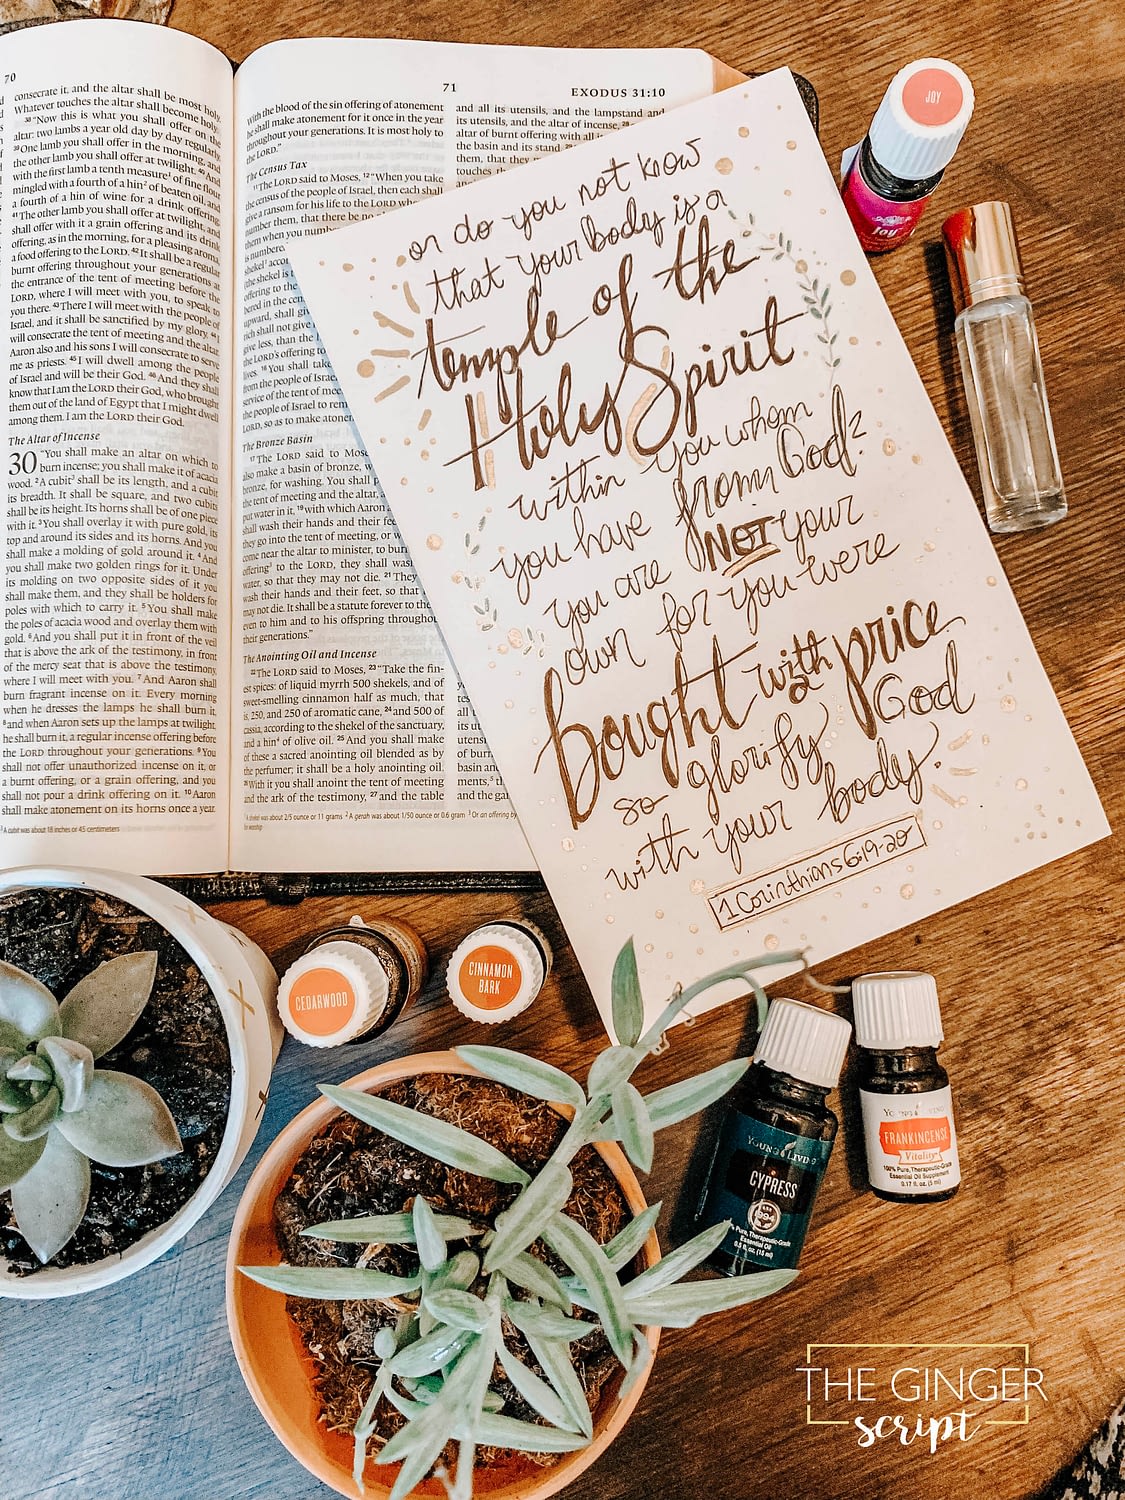 70
consecrate it, and the altar shall be most holy.
Whatever touches the altar shall become holy.
38 "Now this is what you shall offer on the
altar: two lambs a year old day by day regularly.
39 One lamb you shall offer in the morning, and
the other lamb you shall offer at twilight. 40 And
with the first lamb a tenth measure of fine flour
mingled with a fourth of a hin of beaten oil, and
a fourth of a hin of wine for a drink offering.
41 The other lamb you shall offer at twilight, and
shall offer with it a grain offering and its drink
offering, as in the morning, for a pleasing aroma,
a food offering to the LORD. 42 It shall be a regular
burnt offering throughout your generations at
the entrance of the tent of meeting before the
LORD, where I will meet with you, to speak to
you there. 43 There I will meet with the people of
Israel, and it shall be sanctified by my glory. 44 I
will consecrate the tent of meeting and the altar.
Aaron also and his sons I will consecrate to serve
me as priests. 45 I will dwell among the people
of Israel and will be their God. 46 And they shall
know that I am the LORD their God, who brought
them out of the land of Egypt that I might dwell
among them. I am the LORD their God.
The Altar of Incense
30 "You shall make an altar on which to
burn incense; you shall make it of acacia
wood. 2 A cubit shall be its length, and a cubit
its breadth. It shall be square, and two cubits
shall be its height. Its horns shall be of one piece
with it. 3 You shall overlay it with pure gold, its
top and around its sides and its horns. And you
shall make a molding of gold around it. 4 And
you shall make two golden rings for it. Under
its molding on two opposite sides of it you
shall make them, and they shall be holders for
poles with which to carry it. 5 You shall make
the poles of acacia wood and overlay them with
gold. 6 And you shall put it in front of the veil
that is above the ark of the testimony, in front
of the mercy seat that is above the testimony,
where I will meet with you. 7 And Aaron shall
burn fragrant incense on it. Every morning
when he dresses the lamps he shall burn it,
8 and when Aaron sets up the lamps at twilight,
he shall burn it, a regular incense offering before
the LORD throughout your generations. 9 You
shall not offer unauthorized incense on it, or
a burnt offering, or a grain offering, and you
shall not pour a drink offering on it. 10 Aaron
shall make atonement on its horns once a year.
1 A cubit was about 18 inches or 45 centimeters
71
EXODUS 31:10
With the blood of the sin offering of atonement
he shall make atonement for it once in the year
throughout your generations. It is most holy to
the LORD."
The Census Tax
11 The LORD said to Moses, 12 "When you take
the census of the people of Israel, then each shall
give a ransom for his life to the LORD
number them, that there be no
them when you
is numbered
shekel
(the shekel is
offering to the
bered in the cen
upward, shall give
rich shall not give
give less, than the
the LORD's offering to
lives. 16 You shall take
from the people of Israel
service of the tent of mee
the people of Israel to rem
LORD, so as to make atone
The Bronze Basin
17 The LORD said to Mose
also make a basin of bronze, w
bronze, for washing. You shall p
the tent of meeting and the altar, a
put water in it, 19 with which Aaron
shall wash their hands and their fee
they go into the tent of meeting, or w
come near the altar to minister, to bur
offering to the LORD, they shall wash
water, so that they may not die. 21 They
wash their hands and their feet, so that
may not die. It shall be a statute forever to the
even to him and to his offspring throughou
their generations."
The Anointing Oil and Incense
22 The LORD said to Moses, 23 "Take the fin-
est spices: of liquid myrrh 500 shekels, and of
sweet-smelling cinnamon half as much, that
is, 250, and 250 of aromatic cane, 24 and 500 of
cassia, according to the shekel of the sanctuary,
and a hin of olive oil. 25 And you shall make
of these a sacred anointing oil blended as by
the perfumer; it shall be a holy anointing oil.
26 With it you shall anoint the tent of meeting
and the ark of the testimony, 27 and the table
and all its utensils, and the lampstand and
its utensils, and the altar of incense, 28
altar of burnt offering with all i
the basin and its stand.
them, that they
touches th
or do you not know
that your body is a
temple of the
Holy Spirit
within you whom
you have from God?
you are NOT your
own for you were
bought with a price
so glorify God
with your body.
1 Corinthians 6:19-20
JOY
Joy
CEDARWOOD
CINNAMON
BARK
YOUNG LIVING
CYPRESS
Pure, Therapeutic-Grade
Essential Oil
0.5 fl. oz. (15 ml)
YOUNG LIVING
FRANKINCENSE
Vitality
100% Pure, Therapeutic-Grade
Essential Oil Supplement
0.17 fl. oz. (5 ml)
THE GINGER
script